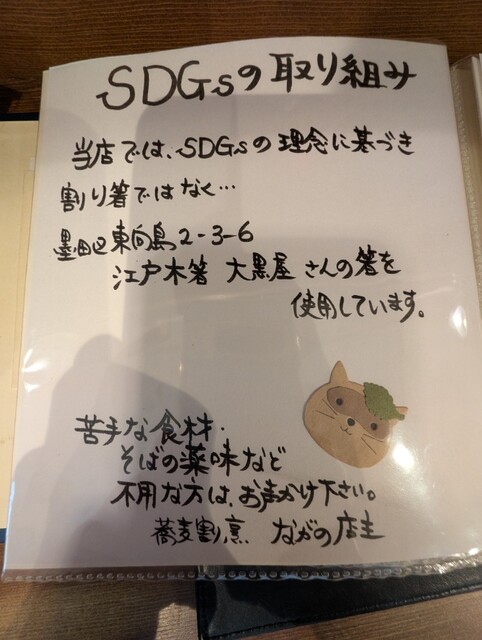 SDGsの取り組み
当店では、SDGsの理念に基づき
割り箸ではなく…
墨田区東向島2-3-6
江戸木箸 大黒屋 さんの箸を
使用しています。
苦手な食材・
そばの薬味など
不用な方は、お声かけ下さい。
蕎麦割烹 ながの店主